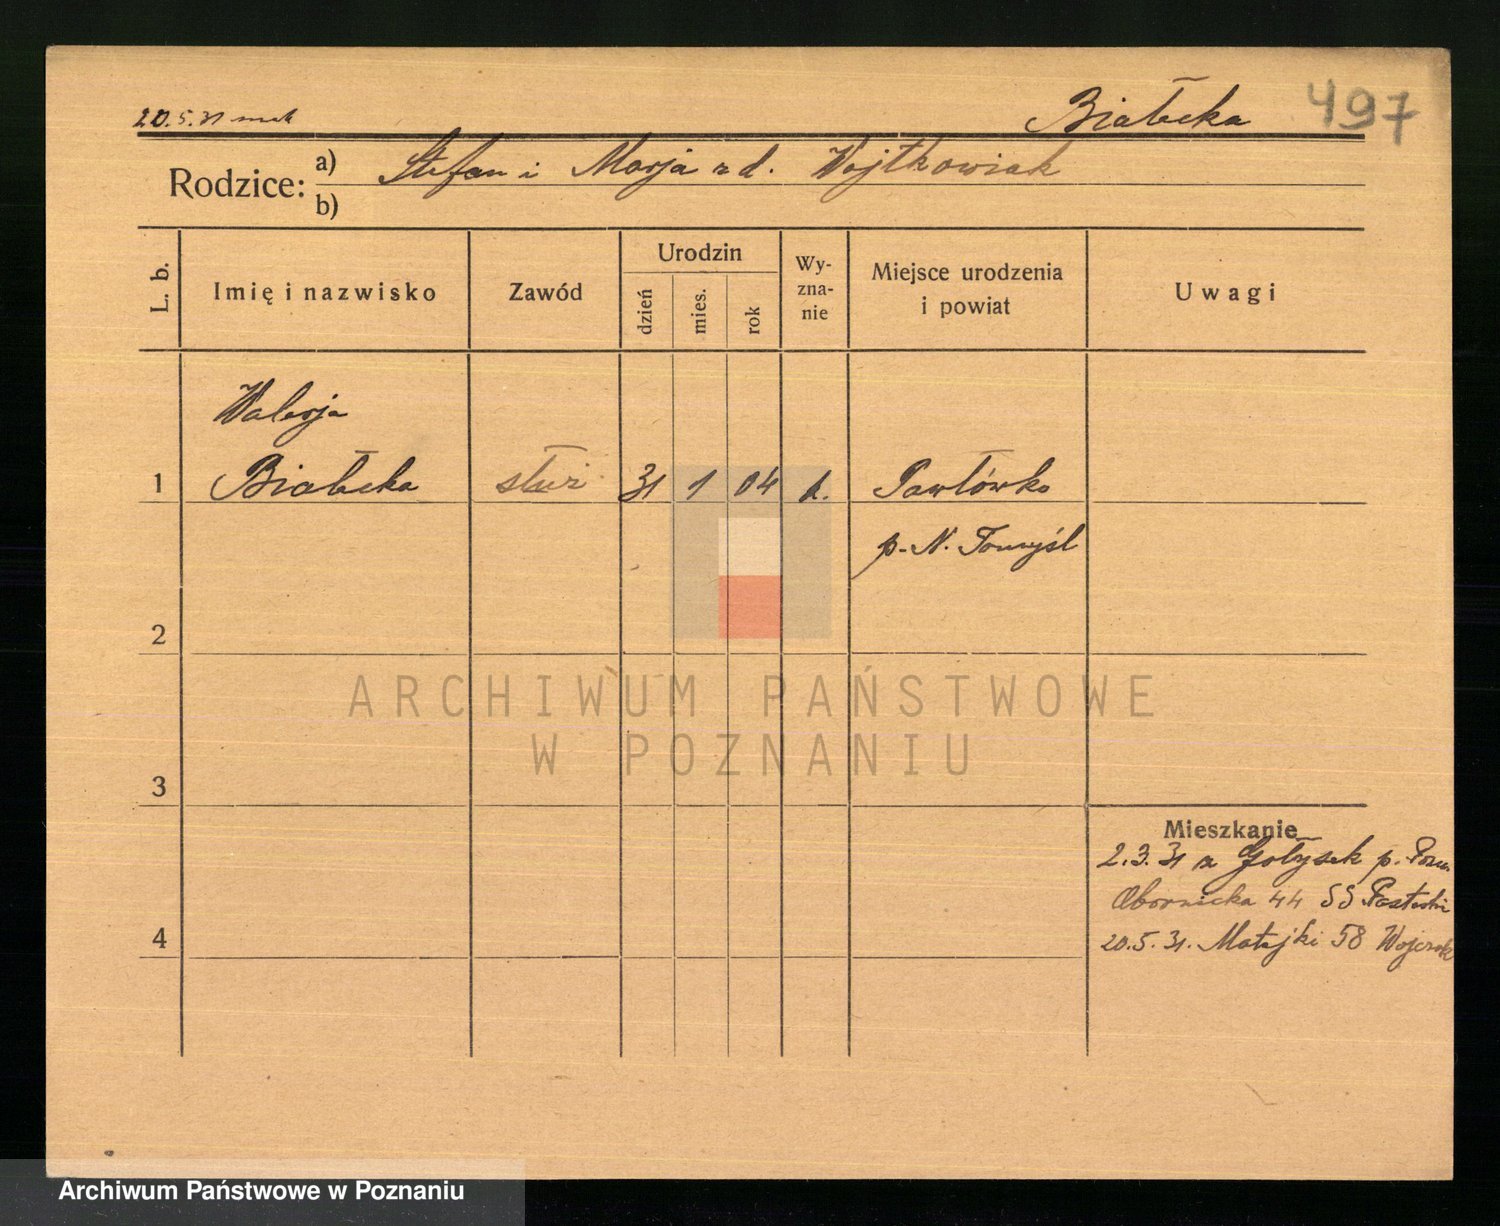 20.5.31
Białecka
497
Rodzice:
a) Stefan i Marja z d. Wojtkowiak
b)
L. b.
Imię i nazwisko
Zawód
Urodzin
dzień
mies.
rok
Wy-
zna-
nie
Miejsce urodzenia
i powiat
Uwagi
Walerja
1 Białecka służ 31 1 04 k. Pawłówko
p. N. Tomyśl
2
3
4
Mieszkanie
2.3.31 z p. Pozn.
Obornicka 44
20.5.31. Matejki 58
ARCHIWUM PAŃSTWOWE
W POZNANIU
Archiwum Państwowe w Poznaniu